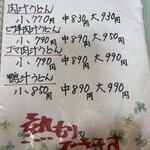 肉汁うどん
小 770円 中 830円 大 930円
ピリ辛肉汁うどん
小 790円 中 890円 大 950円
ゴマ肉汁うどん
小 790円 中 890円 大 950円
鴨汁うどん
小 850円 中 890円 大 990円
熱もり